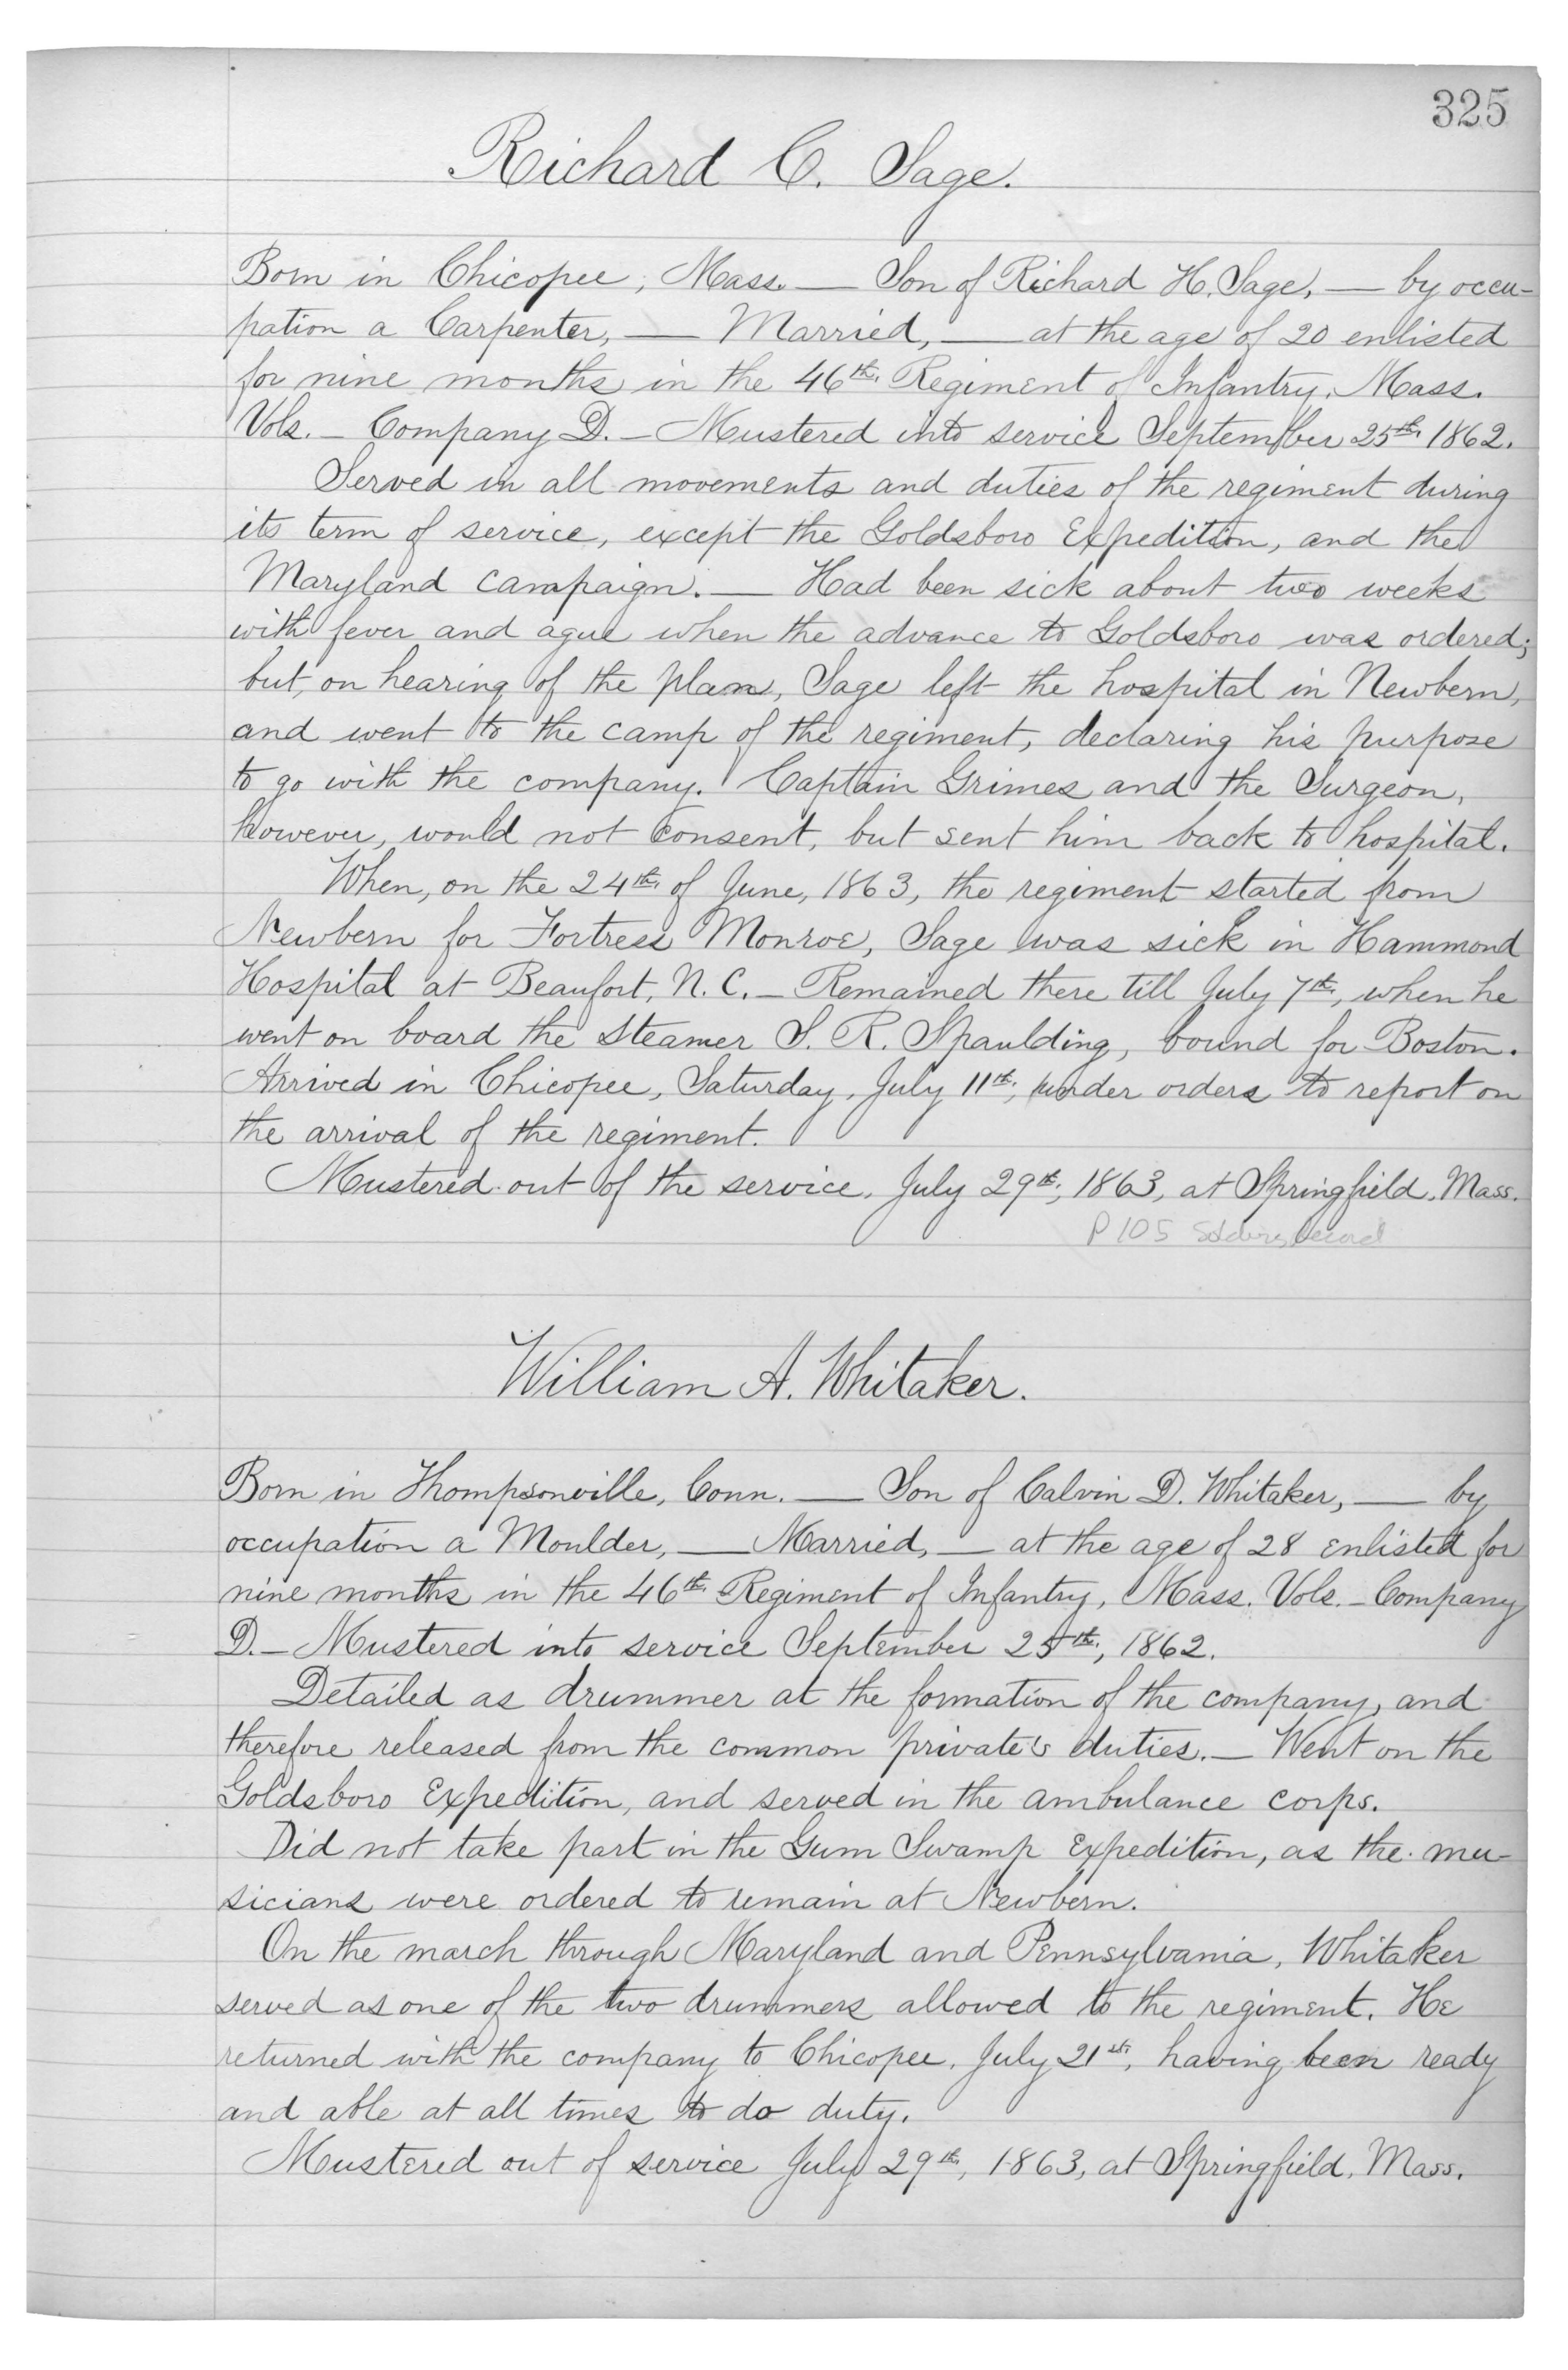 325
Richard C. Sage.
Born in Chicopee, Mass. — Son of Richard H. Sage, — by occu-
pation a Carpenter, — Married, — at the age of 20 enlisted
for nine months in the 46th. Regiment of Infantry, Mass.
Vols. — Company D. — Mustered into service September 25th. 1862.
Served in all movements and duties of the regiment during
its term of service, except the Goldsboro Expedition, and the
Maryland campaign. — Had been sick about two weeks
with fever and ague when the advance to Goldsboro was ordered;
but, on hearing of the plan, Sage left the hospital in Newbern,
and went to the camp of the regiment, declaring his purpose
to go with the company. Captain Grimes and the Surgeon,
however, would not consent, but sent him back to hospital.
When, on the 24th. of June, 1863, the regiment started from
Newbern for Fortress Monroe, Sage was sick in Hammond
Hospital at Beaufort, N. C. — Remained there till July 7th., when he
went on board the Steamer S. R. Spaulding, bound for Boston.
Arrived in Chicopee, Saturday, July 11th., under orders to report on
the arrival of the regiment.
Mustered out of the service, July 29th., 1863, at Springfield, Mass.
P 105 Soldiers Record
William A. Whitaker.
Born in Thompsonville, Conn. — Son of Calvin D. Whitaker, — by
occupation a Moulder, — Married, — at the age of 28 enlisted for
nine months in the 46th. Regiment of Infantry, Mass. Vols. — Company
D. — Mustered into service September 25th., 1862.
Detailed as drummer at the formation of the company, and
therefore released from the common private's duties. — Went on the
Goldsboro Expedition, and served in the ambulance corps.
Did not take part in the Gum Swamp Expedition, as the mu-
sicians were ordered to remain at Newbern.
On the march through Maryland and Pennsylvania, Whitaker
served as one of the two drummers allowed to the regiment. He
returned with the company to Chicopee, July 21st., having been ready
and able at all times to do duty.
Mustered out of service July 29th., 1863, at Springfield, Mass.